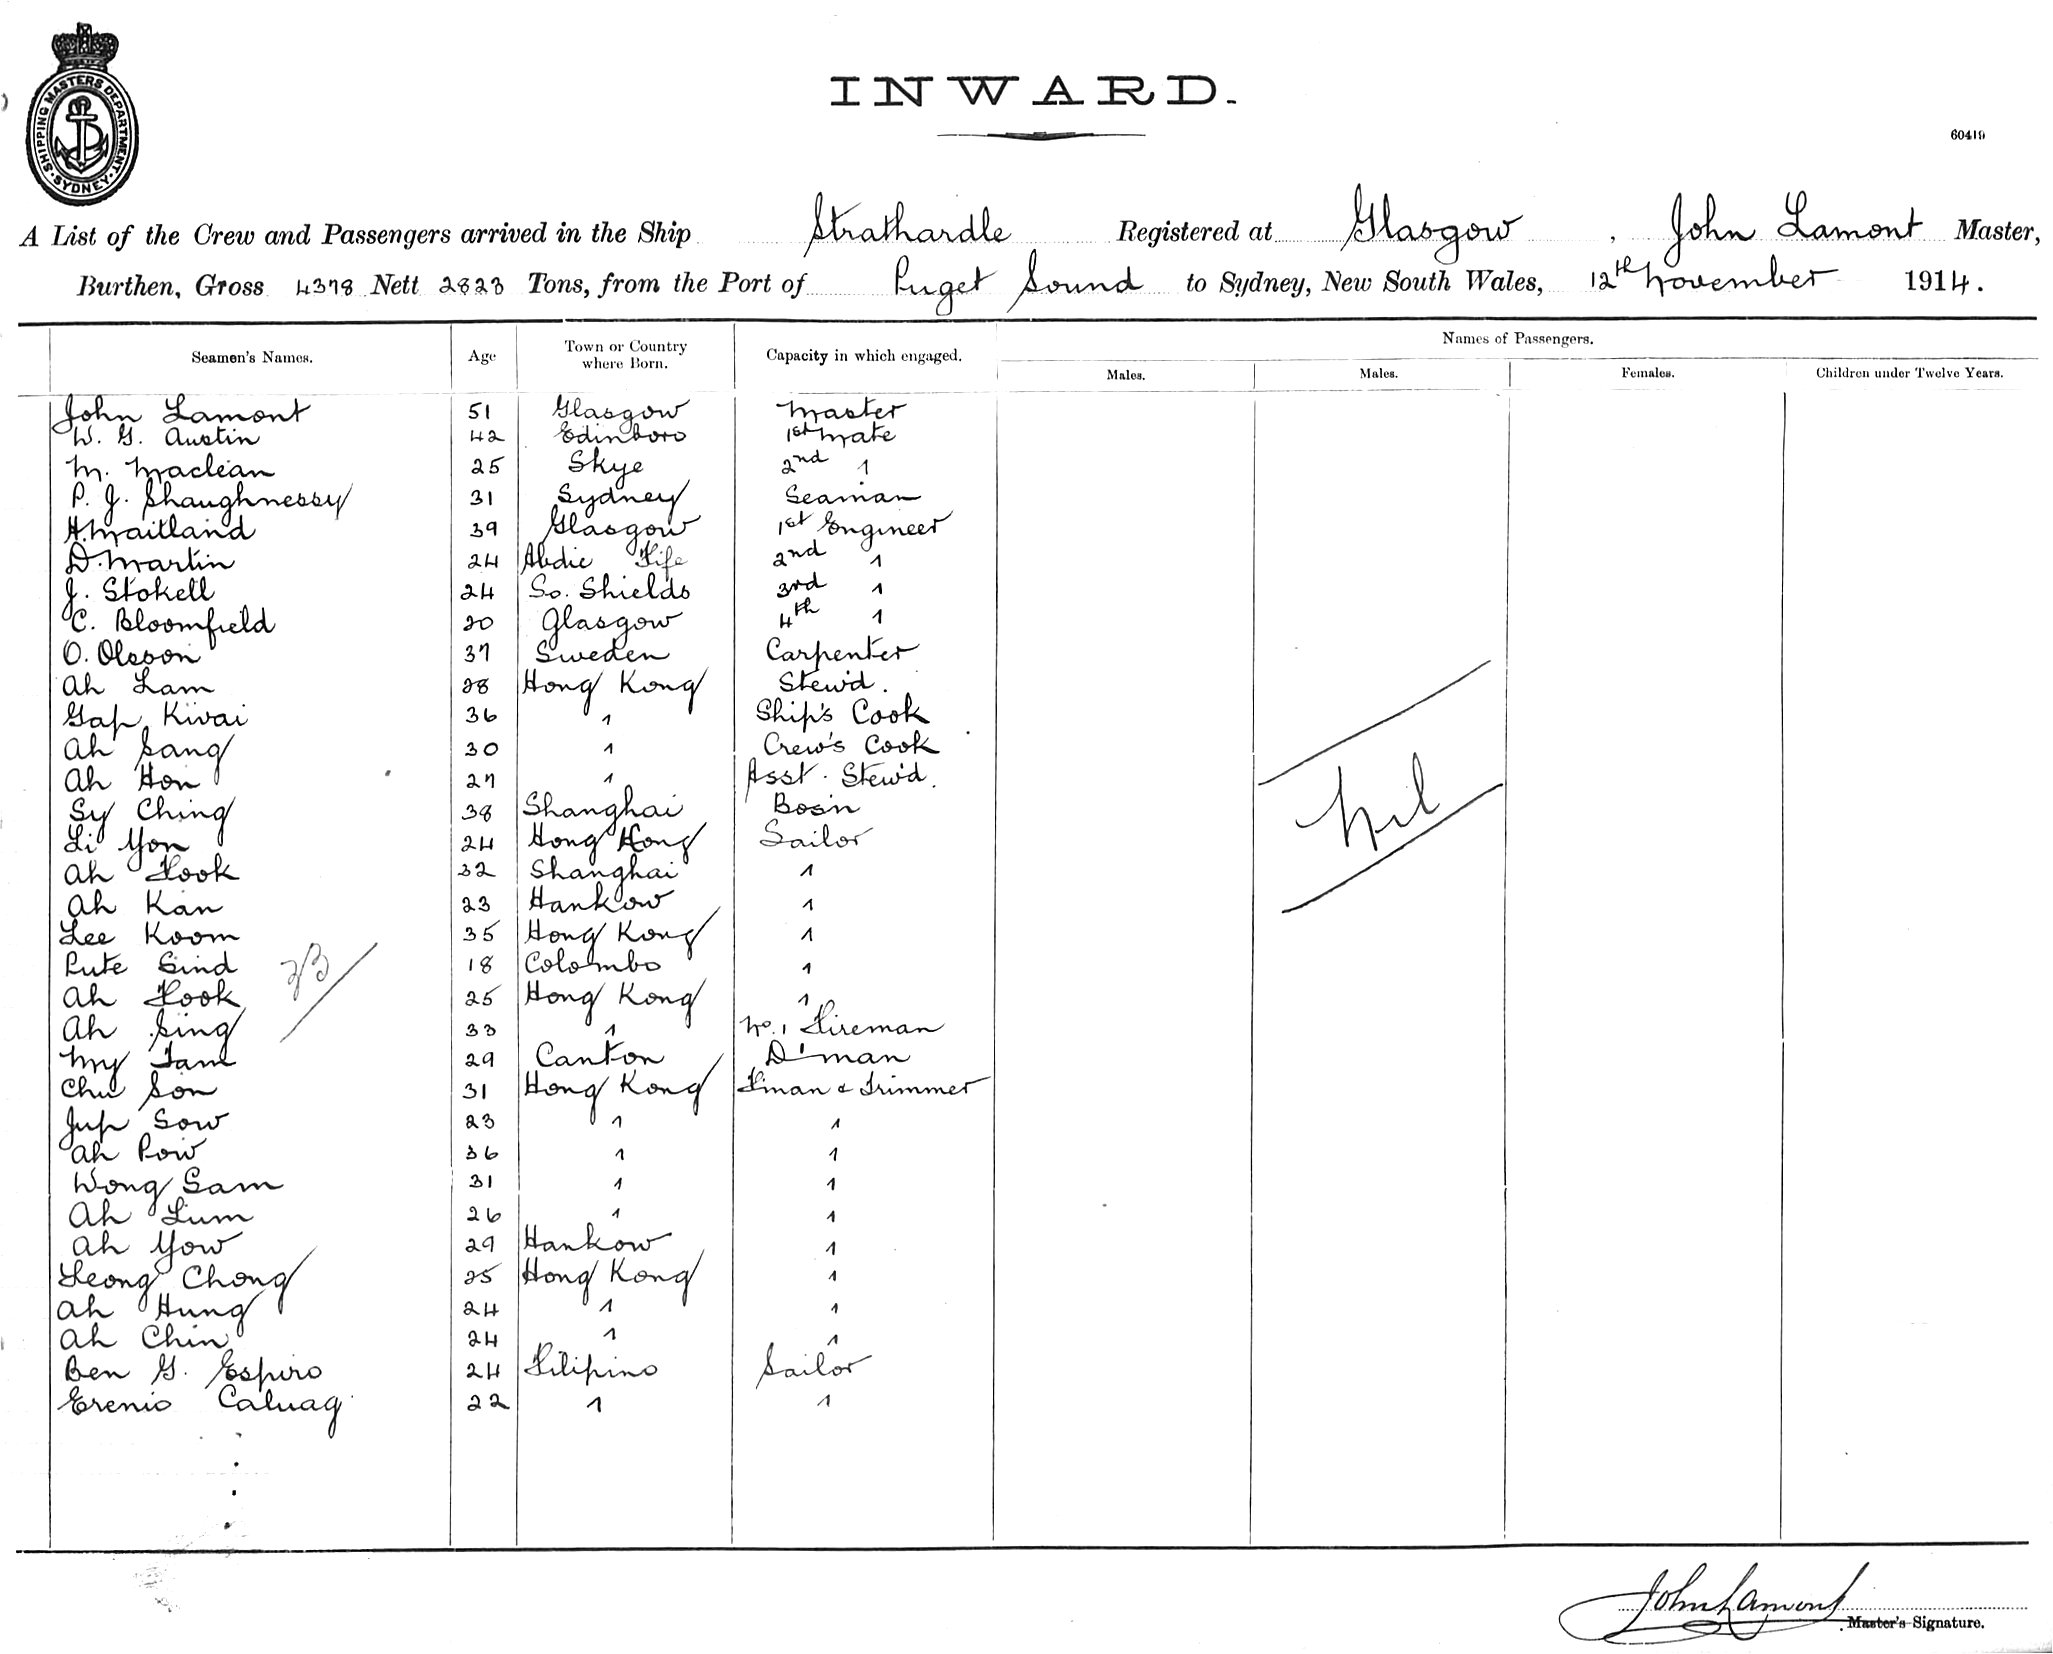 SHIPPING MASTERS DEPARTMENT. SYDNEY.
INWARD.
60419
A List of the Crew and Passengers arrived in the Ship Strathardle Registered at Glasgow, John Lamont Master,
Burthen, Gross 4378 Nett 2823 Tons, from the Port of Puget Sound to Sydney, New South Wales, 12th November 1914.
Seamen's Names. Age Town or Country where Born. Capacity in which engaged. Names of Passengers.
Males. Males. Females. Children under Twelve Years.
John Lamont 51 Glasgow Master
W. G. Austin 42 Edinboro 1st Mate
M. Maclean 25 Skye 2nd "
P. J. Shaughnessy 31 Sydney Seaman
H. Maitland 39 Glasgow 1st Engineer
D. Martin 24 Abdie Fife 2nd "
J. Stokell 24 So. Shields 3rd "
C. Bloomfield 20 Glasgow 4th "
O. Olsson 37 Sweden Carpenter
Ah Lam 28 Hong Kong Stew'd.
Gap Kwai 36 " Ship's Cook
Ah Sang 30 " Crew's Cook
Ah Hon 27 " Asst. Stew'd.
Sy Ching 38 Shanghai Bosn
Li Yon 24 Hong Kong Sailor
Nil
Ah Fook 32 Shanghai "
Ah Kan 23 Hankow "
Lee Koom 35 Hong Kong "
Pute Sind 18 Colombo "
33
Ah Fook 25 Hong Kong "
Ah Sing 33 " No. 1 Fireman
My Tam 29 Canton D'man
Chu Son 31 Hong Kong F'man & Trimmer
Jup Sow 23 " "
Ah Pow 36 " "
Wong Sam 31 " "
Ah Lum 26 " "
Ah Yow 29 Hankow "
Leong Chong 25 Hong Kong "
Ah Hung 24 " "
Ah Chin 24 " "
Ben G. Espiro 24 Filipino Sailor
Erenio Caluag 22 " "
John Lamont
Master's Signature.